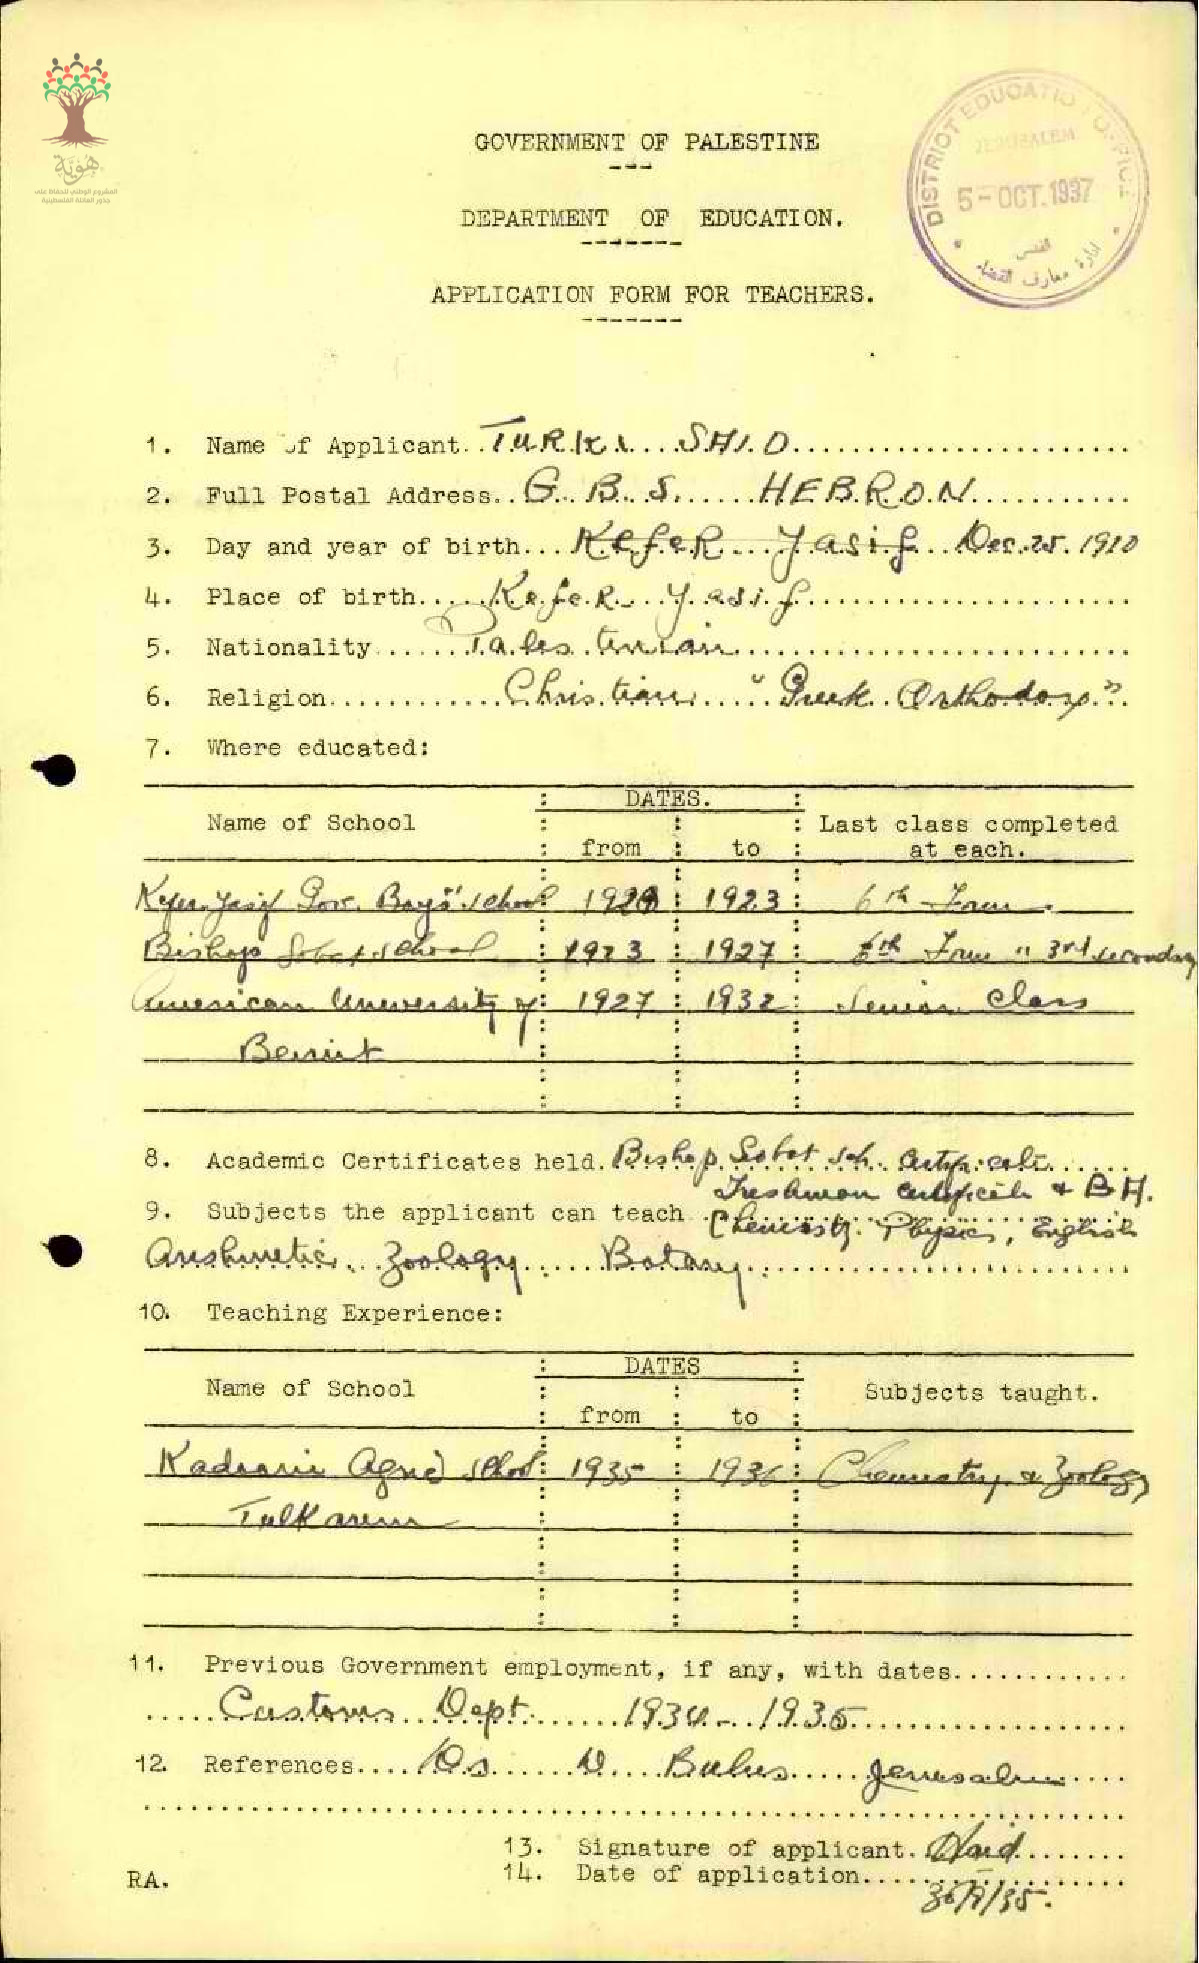 هوية
المشروع الوطني للحفاظ على
جذور العائلة الفلسطينية
DISTRICT EDUCATION OFFICE
JERUSALEM
5 - OCT. 1937
القدس
ادارة معارف القضاء
GOVERNMENT OF PALESTINE
DEPARTMENT OF EDUCATION.
APPLICATION FORM FOR TEACHERS.
1. Name of Applicant.. TURKI SAID
2. Full Postal Address.. G. B. S. HEBRON
3. Day and year of birth... Kefer Yasif Dec. 25. 1910
4. Place of birth..... Kefer Yasif
5. Nationality....... Palestinian
6. Religion............ Christian "Greek Orthodox"
7. Where educated:
DATES.
Name of School from to Last class completed at each.
Kefer Yasif Gov. Boys' School 1920 1923 6th Form
Bishop Gobat School 1923 1927 6th Form " 3rd secondary
American University of 1927 1932 Senior Class
Beirut
8. Academic Certificates held. Bishop Gobat Sch. Certificate
Freshman Certificate & B.A.
9. Subjects the applicant can teach.. Chemistry. Physics, English
Arithmetic, Zoology Botany
10. Teaching Experience:
DATES
Name of School from to Subjects taught.
Kadoorie Agric School 1935 1936 Chemistry & Zoology
Tulkarem
11. Previous Government employment, if any, with dates............
Customs Dept. 1934 - 1935
12. References.... Ds D Bulus Jerusalem
13. Signature of applicant. Said
14. Date of application.....
RA.